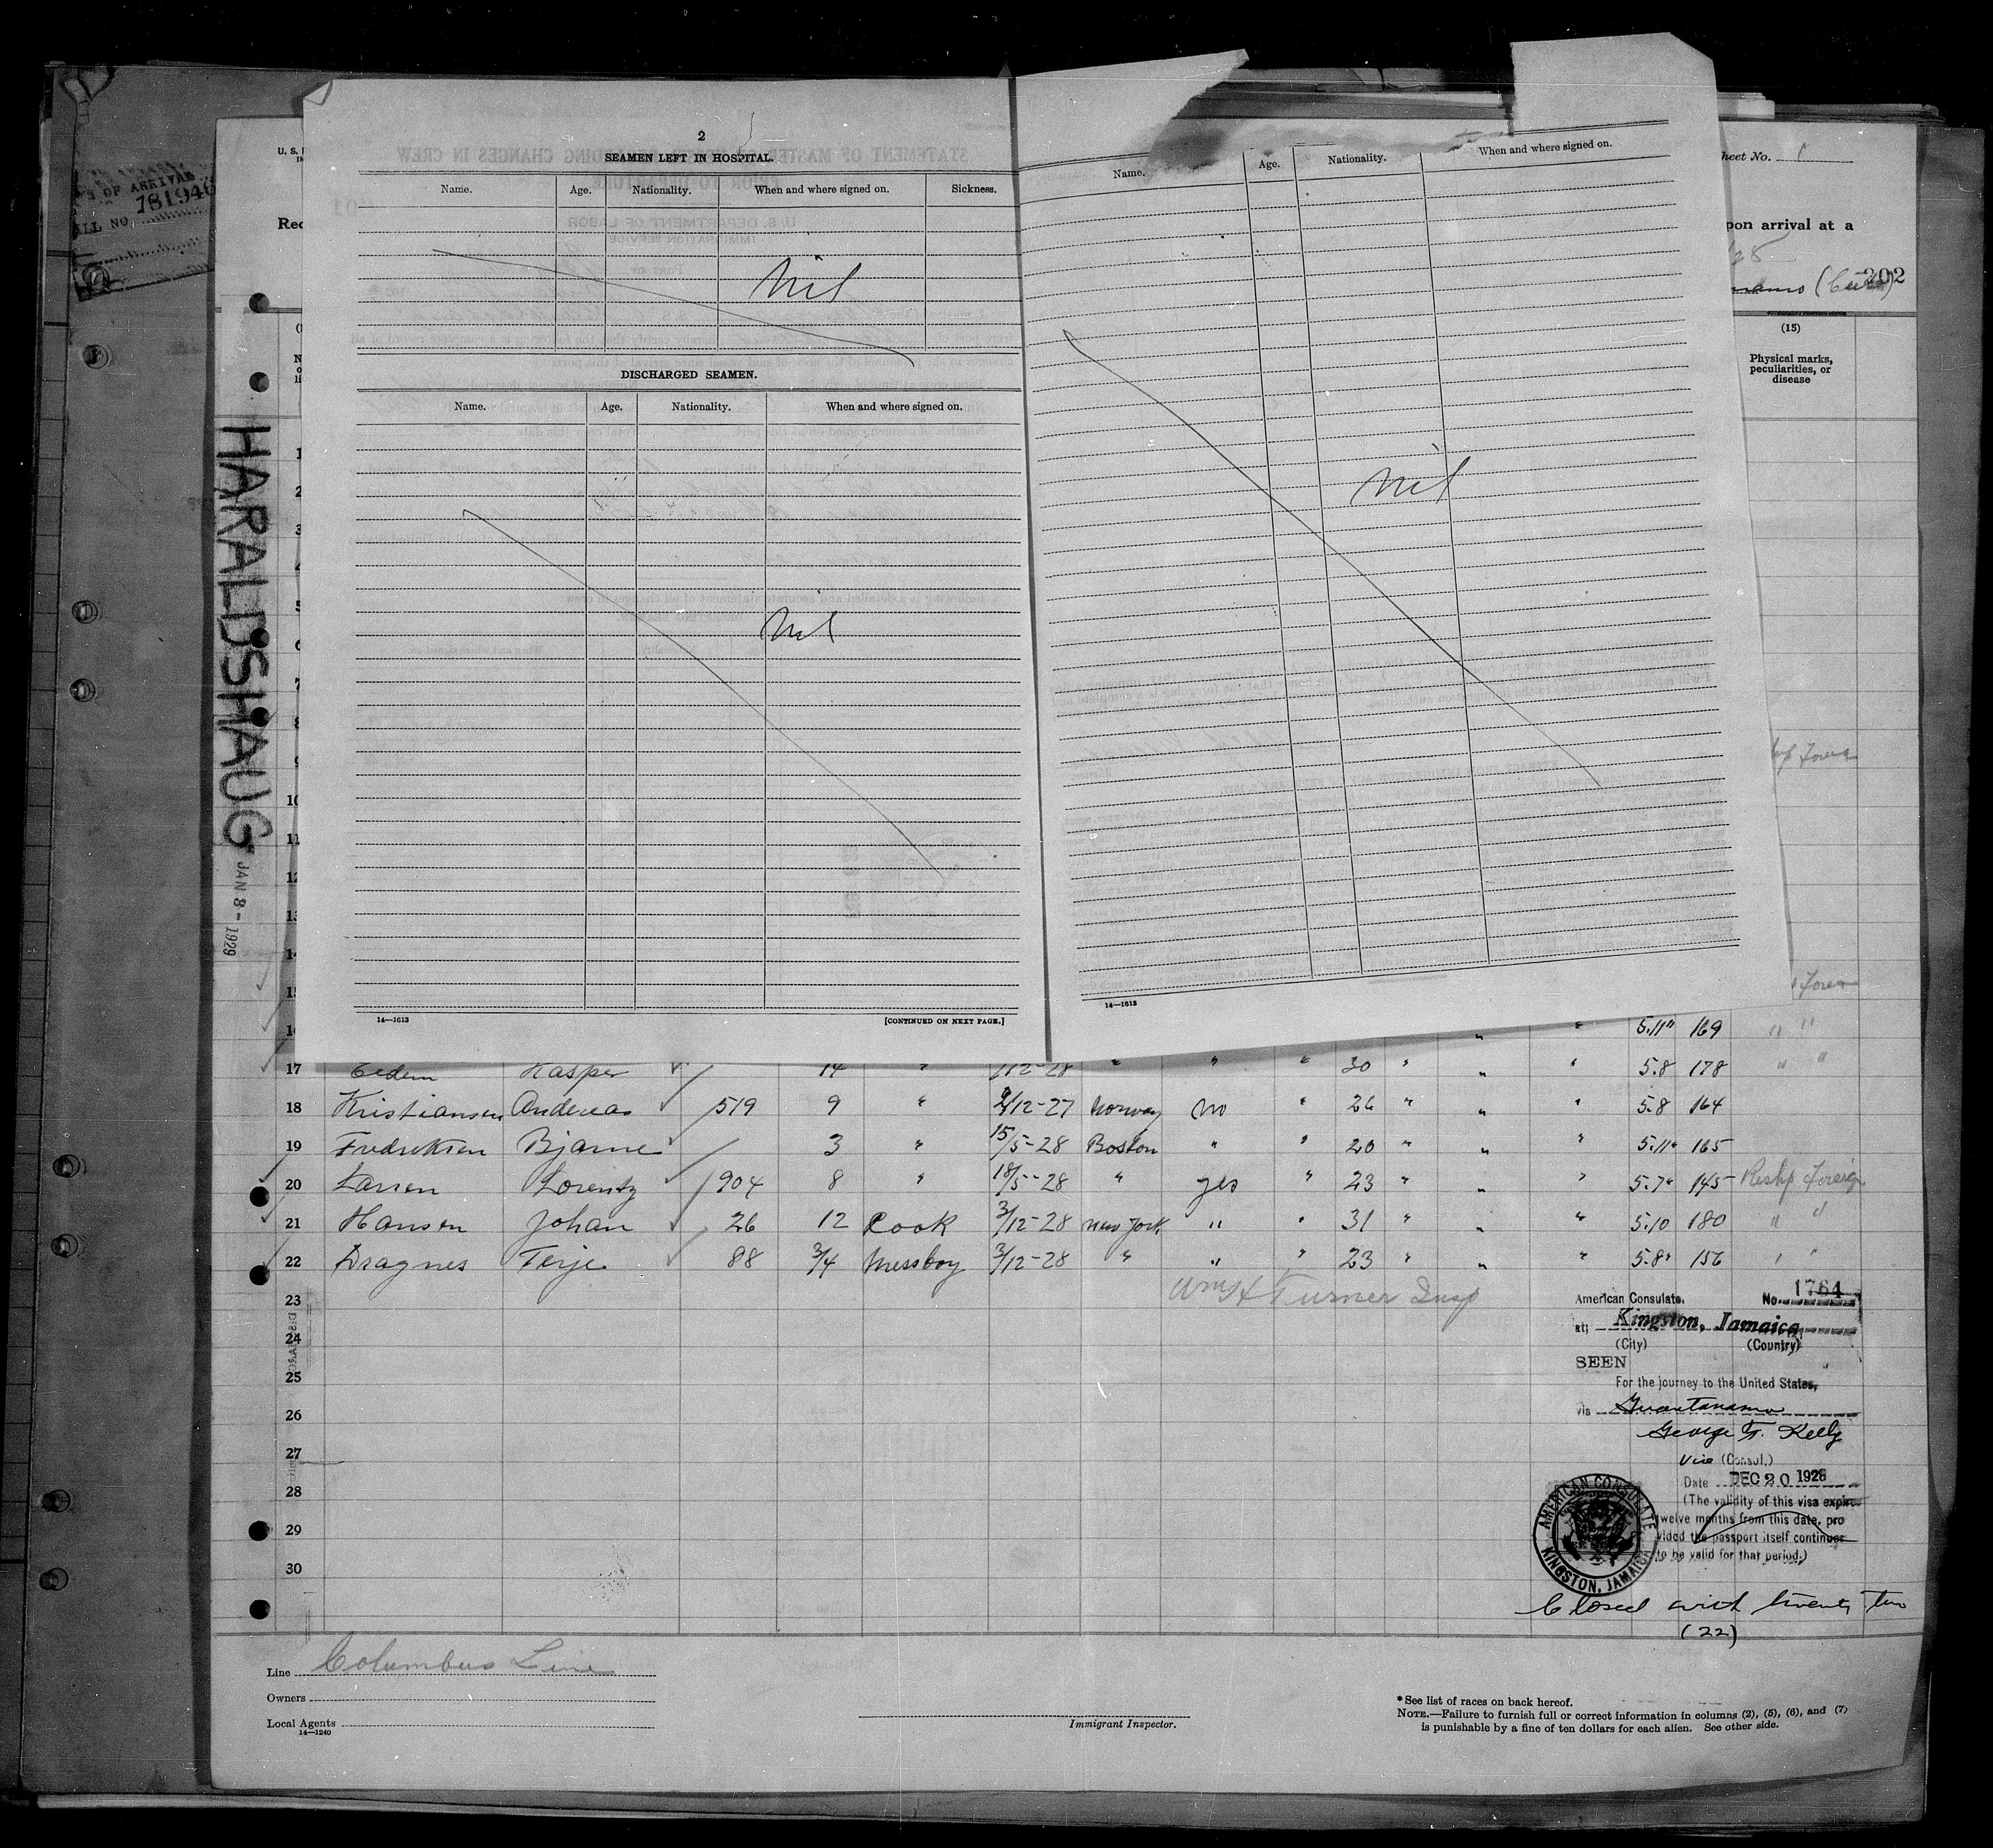 2
SEAMEN LEFT IN HOSPITAL.
Name. Age. Nationality. When and where signed on. Sickness.
Nil
DISCHARGED SEAMEN.
Name. Age. Nationality. When and where signed on.
Nil
14—1613 [CONTINUED ON NEXT PAGE.]
Name. Age. Nationality. When and where signed on.
Nil
14—1613
OF ARRIVAL
781940
U. S.
Rec
heet No. 1
pon arrival at a
202
(15)
Physical marks, peculiarities, or disease
HARALDSHAUG
JAN 8 - 1929
1
2
3
4
5
6
7
8
9
10
11
12
13
14
15
16 5.11" 169 " "
17 Kasper 14 " /12-28 " " " 30 " " " 5.8 178 " "
18 Kristiansen Andreas 519 9 " 2/12-27 Norway no " 26 " " " 5.8 164
19 Fredriksen Bjarne 3 " 15/5-28 Boston " " 20 " " " 5.11" 165
20 Larsen Lorentz 904 8 " 18/5-28 " yes " 23 " " " 5.7" 145 Reshp Foreign
21 Hansen Johan 26 12 Cook 3/12-28 New York " " 31 " " " 5.10 180 " "
22 Dragnes Terje 88 3/4 Messboy 3/12-28 " " " 23 " " " 5.8" 156 " "
23 Wm H Turner Insp
24
25
26
27
28
29
30
American Consulate. No. 1764
at; Kingston, Jamaica
(City) (Country)
SEEN
For the journey to the United States,
via Guantanamo
George F. Kelly
Vice (Consul.)
Date DEC 20 1928
(The validity of this visa expire
twelve months from this date, pro
vided the passport itself continues
to be valid for that period.)
AMERICAN CONSULATE
KINGSTON, JAMAICA
Closed with twenty two
(22)
Line Columbus Line
Owners
Local Agents
14—1240
Immigrant Inspector.
* See list of races on back hereof.
NOTE.—Failure to furnish full or correct information in columns (2), (5), (6), and (7)
is punishable by a fine of ten dollars for each alien. See other side.